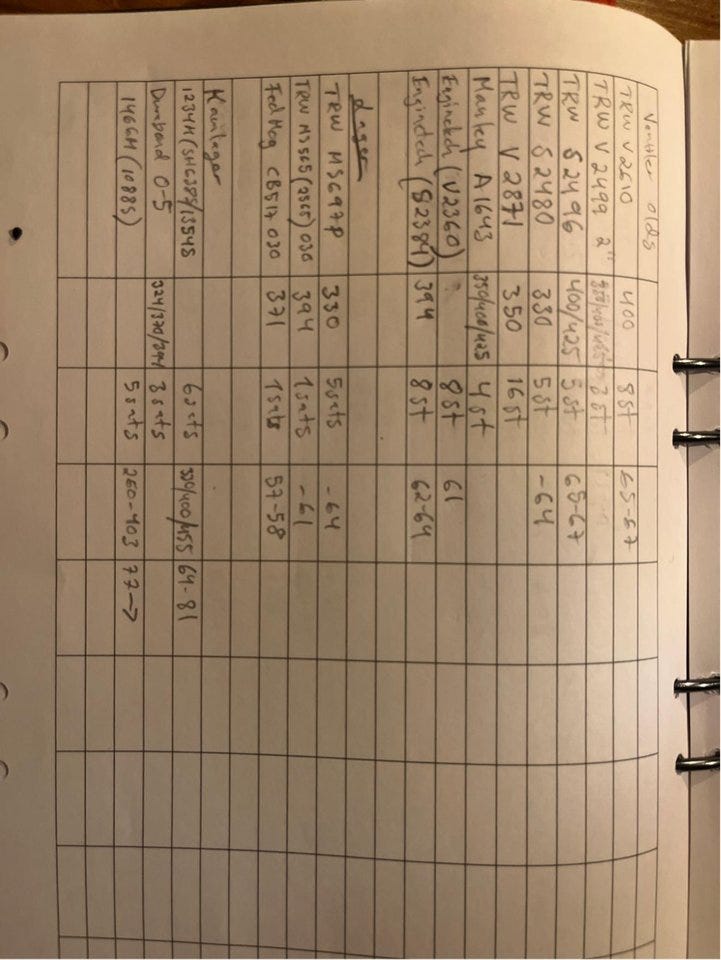 Ventiler Olds
TRW V2510 400 8st 65-67
TRW V2499 2" 3st
TRW S2496 400/425 5st 65-67
TRW S2480 330 5st -64
TRW V2871 350 16st
Manley A1643 350/400/425 4st
Engindech (V2360) 8st 61
Engindech (S2384) 394 8st 62-64
Lager
TRW MS697P 330 5sats -64
TRW MS565 (2565) 030 394 1sats -61
Fed Mog CB517 030 371 1sats 57-58
Kamlager
1234M (SH638S/1354S 6sats 350/400/455 64-81
Durabond O-5 324/370/394 3sats
1466M (1088S) 5sats 260-403 77->